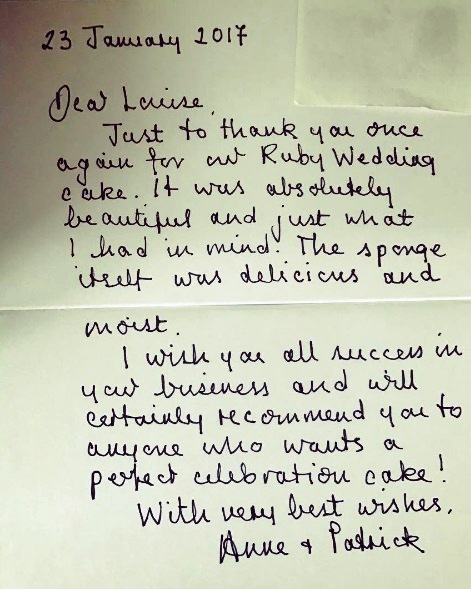 23 January 2017
Dear Louise,
Just to thank you once
again for our Ruby Wedding
cake. It was absolutely
beautiful and just what
I had in mind! The sponge
itself was delicious and
moist.
I wish you all success in
your business and will
certainly recommend you to
anyone who wants a
perfect celebration cake!
With very best wishes,
Anne + Patrick